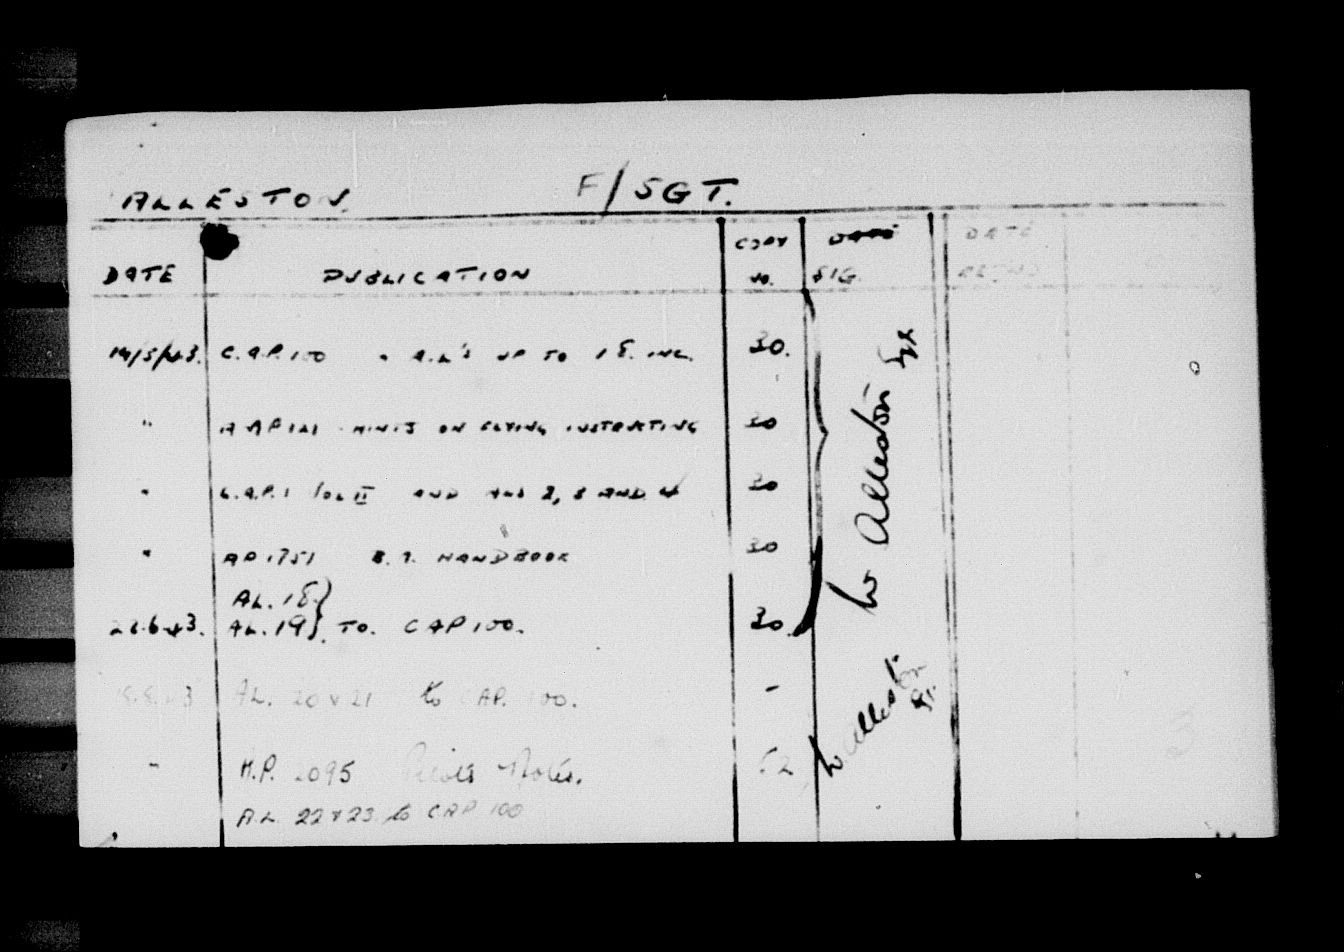 ALLESTON. F/SGT.
DATE PUBLICATION COPY NO. DATE SIG. DATE
19/5/43. C.A.P. 100 A.L'S UP TO 18. INC. 30.
" A.P. HINTS ON FLYING INSTRUCTING 30
" C.A.P. 1 VOL II AND 3 AND 4 30
" AP 1751 HANDBOOK 30
AL. 18 }
6.43. AL. 19 } TO. CAP 100. 30.
W Alleston Sgt
8.43 AL. 20 & 21 to CAP. 100. -
" A.P. 2095 Pilots Notes. 52
A.L. 22 & 23 to CAP 100
W Alleston